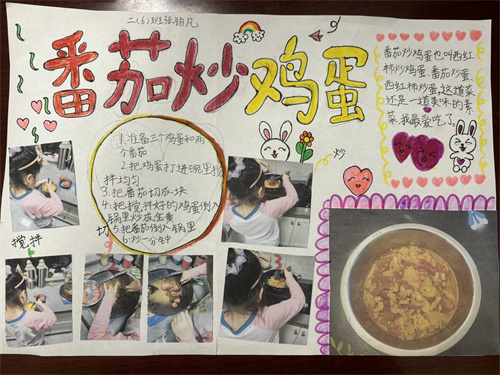 二(6)班张铂凡
番茄炒鸡蛋
番茄炒鸡蛋也叫西红
柿炒鸡蛋、番茄炒蛋、
西红柿炒蛋,这道菜
还是一道美味的素
菜,我最爱吃了。
1.准备三个鸡蛋和两
个番茄
2.把鸡蛋打进碗里搅
拌均匀
3.把番茄切成块
4.把搅拌好的鸡蛋倒入
锅里炒成金黄
5.把番茄倒入锅里
6.炒一分钟
搅拌
切
炒